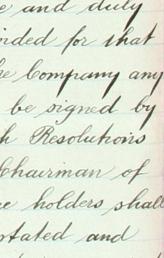 and duly
for that
Company any
be signed by
Resolutions
Chairman of
holders shall
and